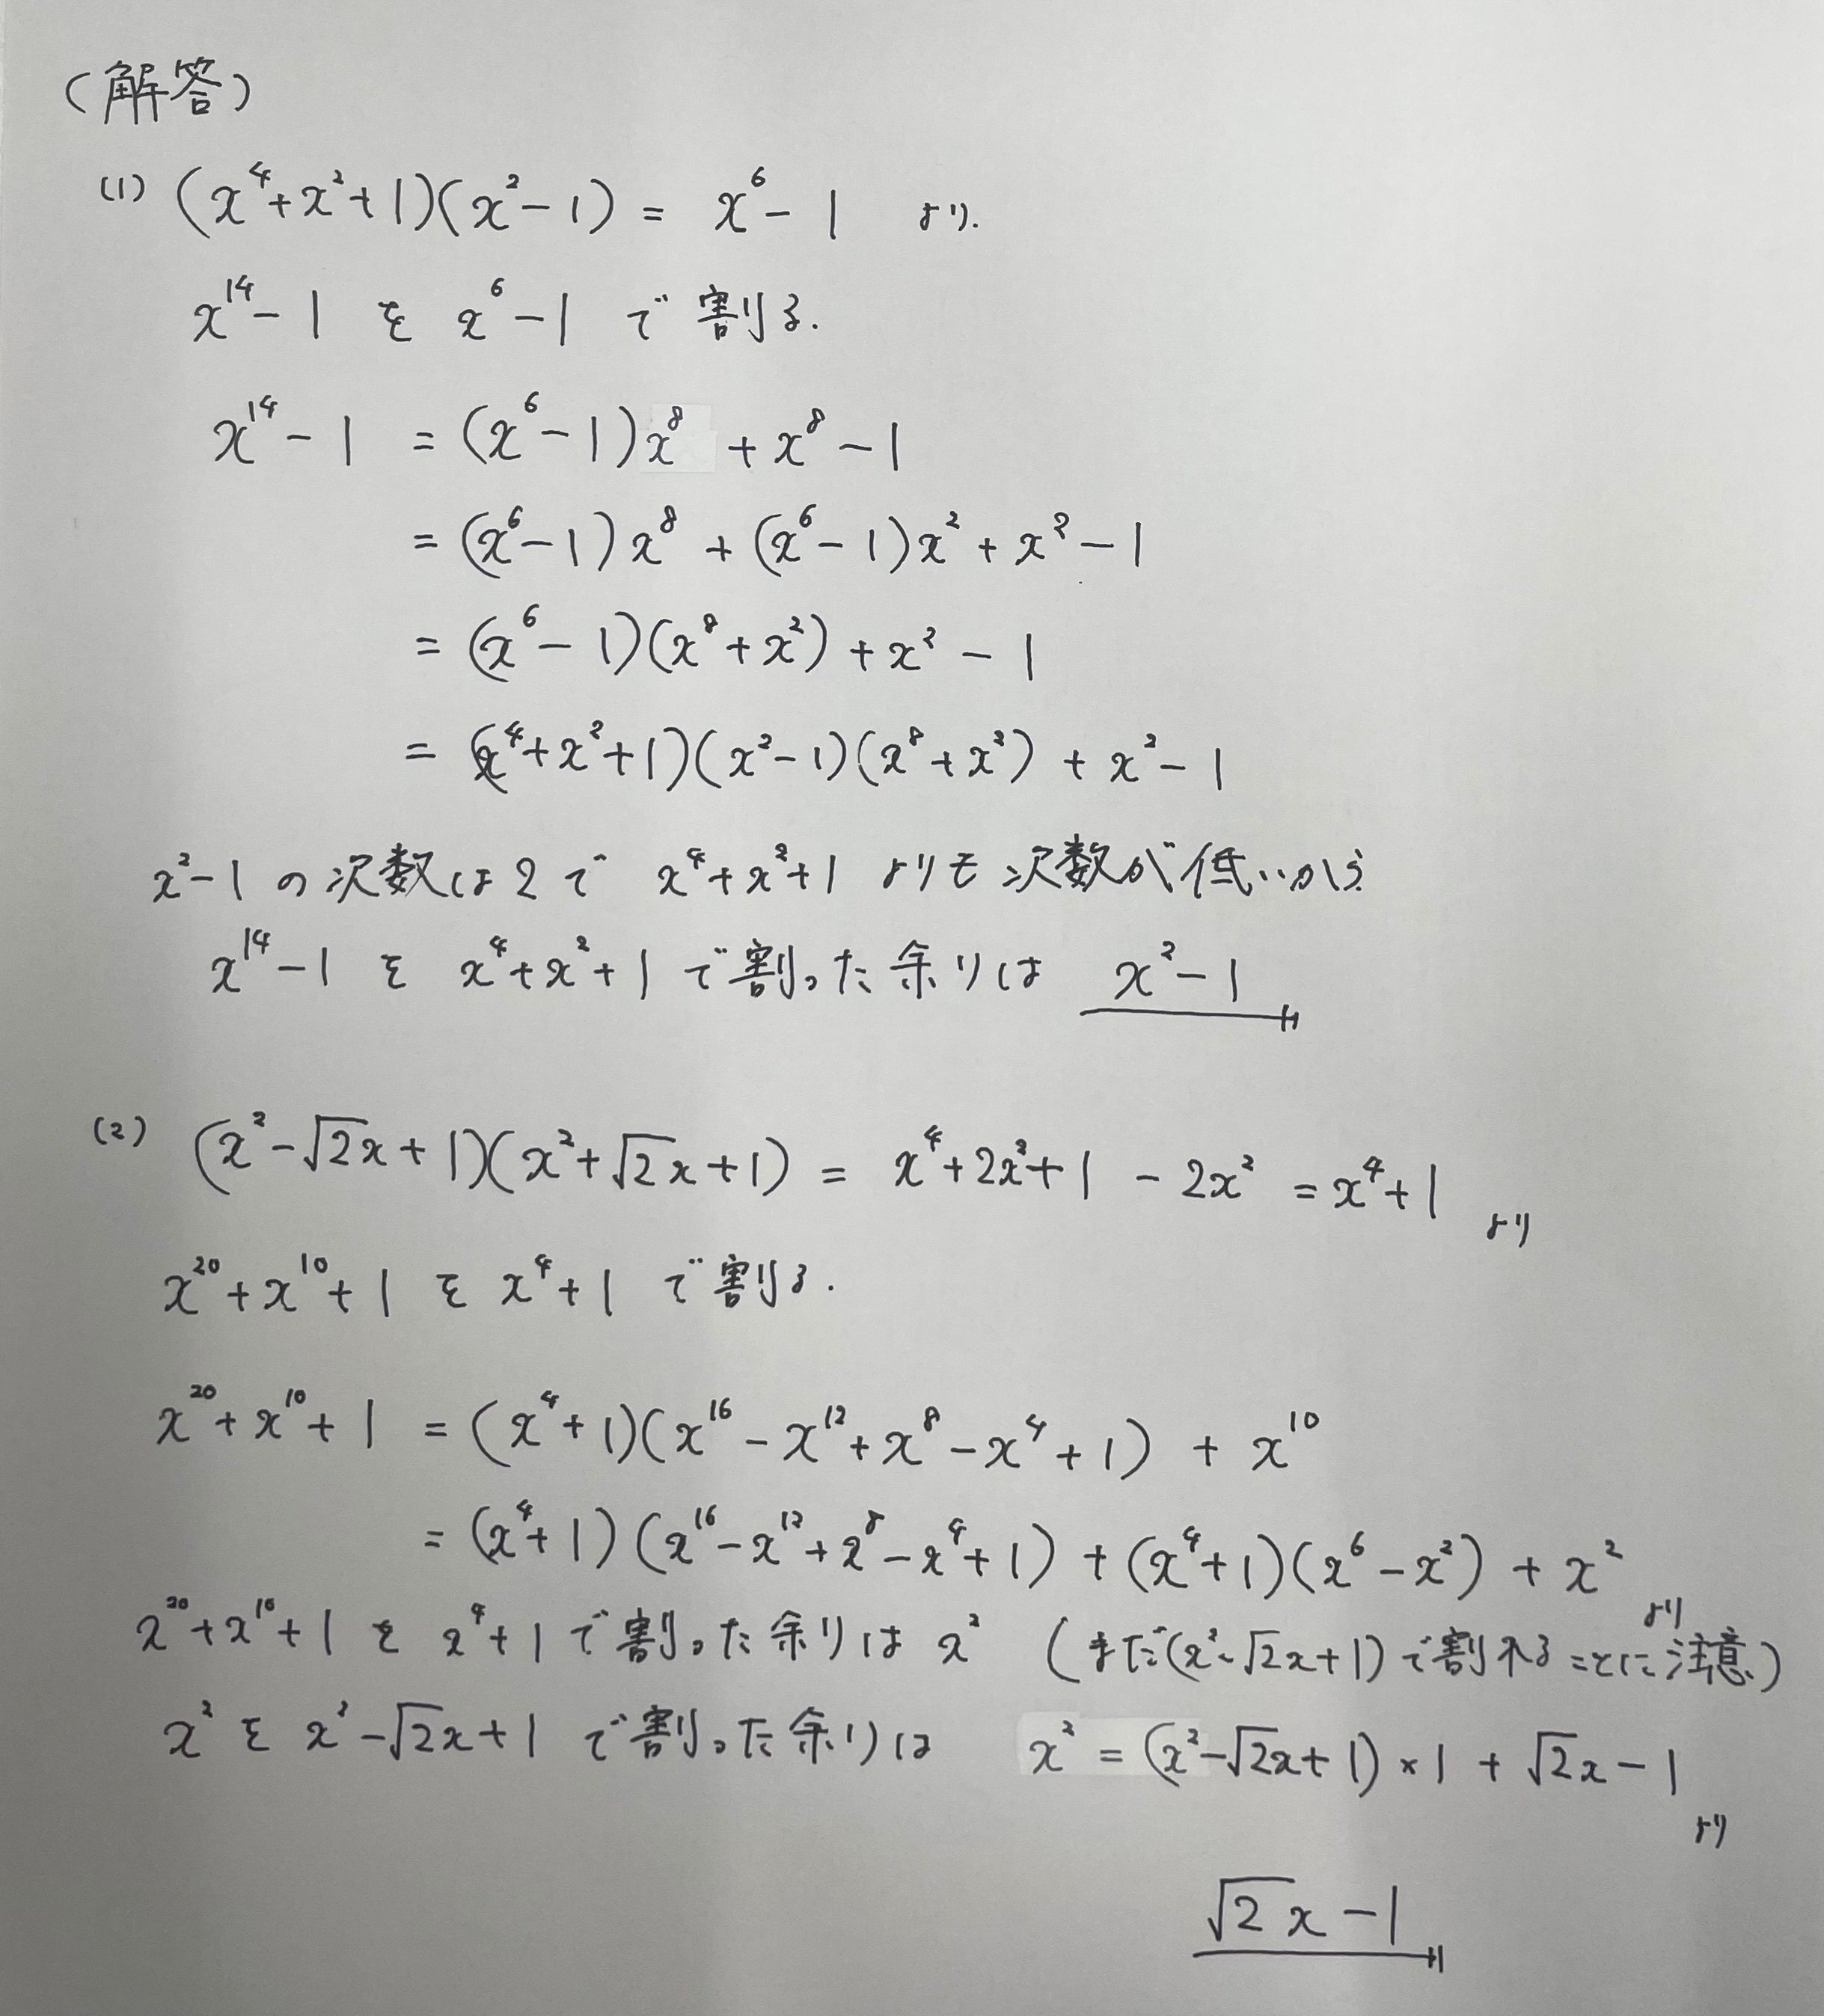 (解答)
(1) (x⁴+x²+1)(x²-1) = x⁶-1 より.
x¹⁴-1 を x⁶-1 で割る.
x¹⁴-1 = (x⁶-1)x⁸ + x⁸-1
= (x⁶-1)x⁸ + (x⁶-1)x² + x²-1
= (x⁶-1)(x⁸+x²) + x²-1
= (x⁴+x²+1)(x²-1)(x⁸+x²) + x²-1
x²-1 の次数は2で x⁴+x²+1 よりも次数が低いから
x¹⁴-1 を x⁴+x²+1 で割った余りは x²-1
(2) (x²-√2x+1)(x²+√2x+1) = x⁴+2x²+1 - 2x² = x⁴+1 より
x²⁰+x¹⁰+1 を x⁴+1 で割る.
x²⁰+x¹⁰+1 = (x⁴+1)(x¹⁶-x¹²+x⁸-x⁴+1) + x¹⁰
= (x⁴+1)(x¹⁶-x¹²+x⁸-x⁴+1) + (x⁴+1)(x⁶-x²) + x² より
x²⁰+x¹⁰+1 を x⁴+1 で割った余りは x² (まだ(x²-√2x+1)で割れることに注意)
x² を x²-√2x+1 で割った余りは x² = (x²-√2x+1)×1 + √2x-1 より
√2x-1